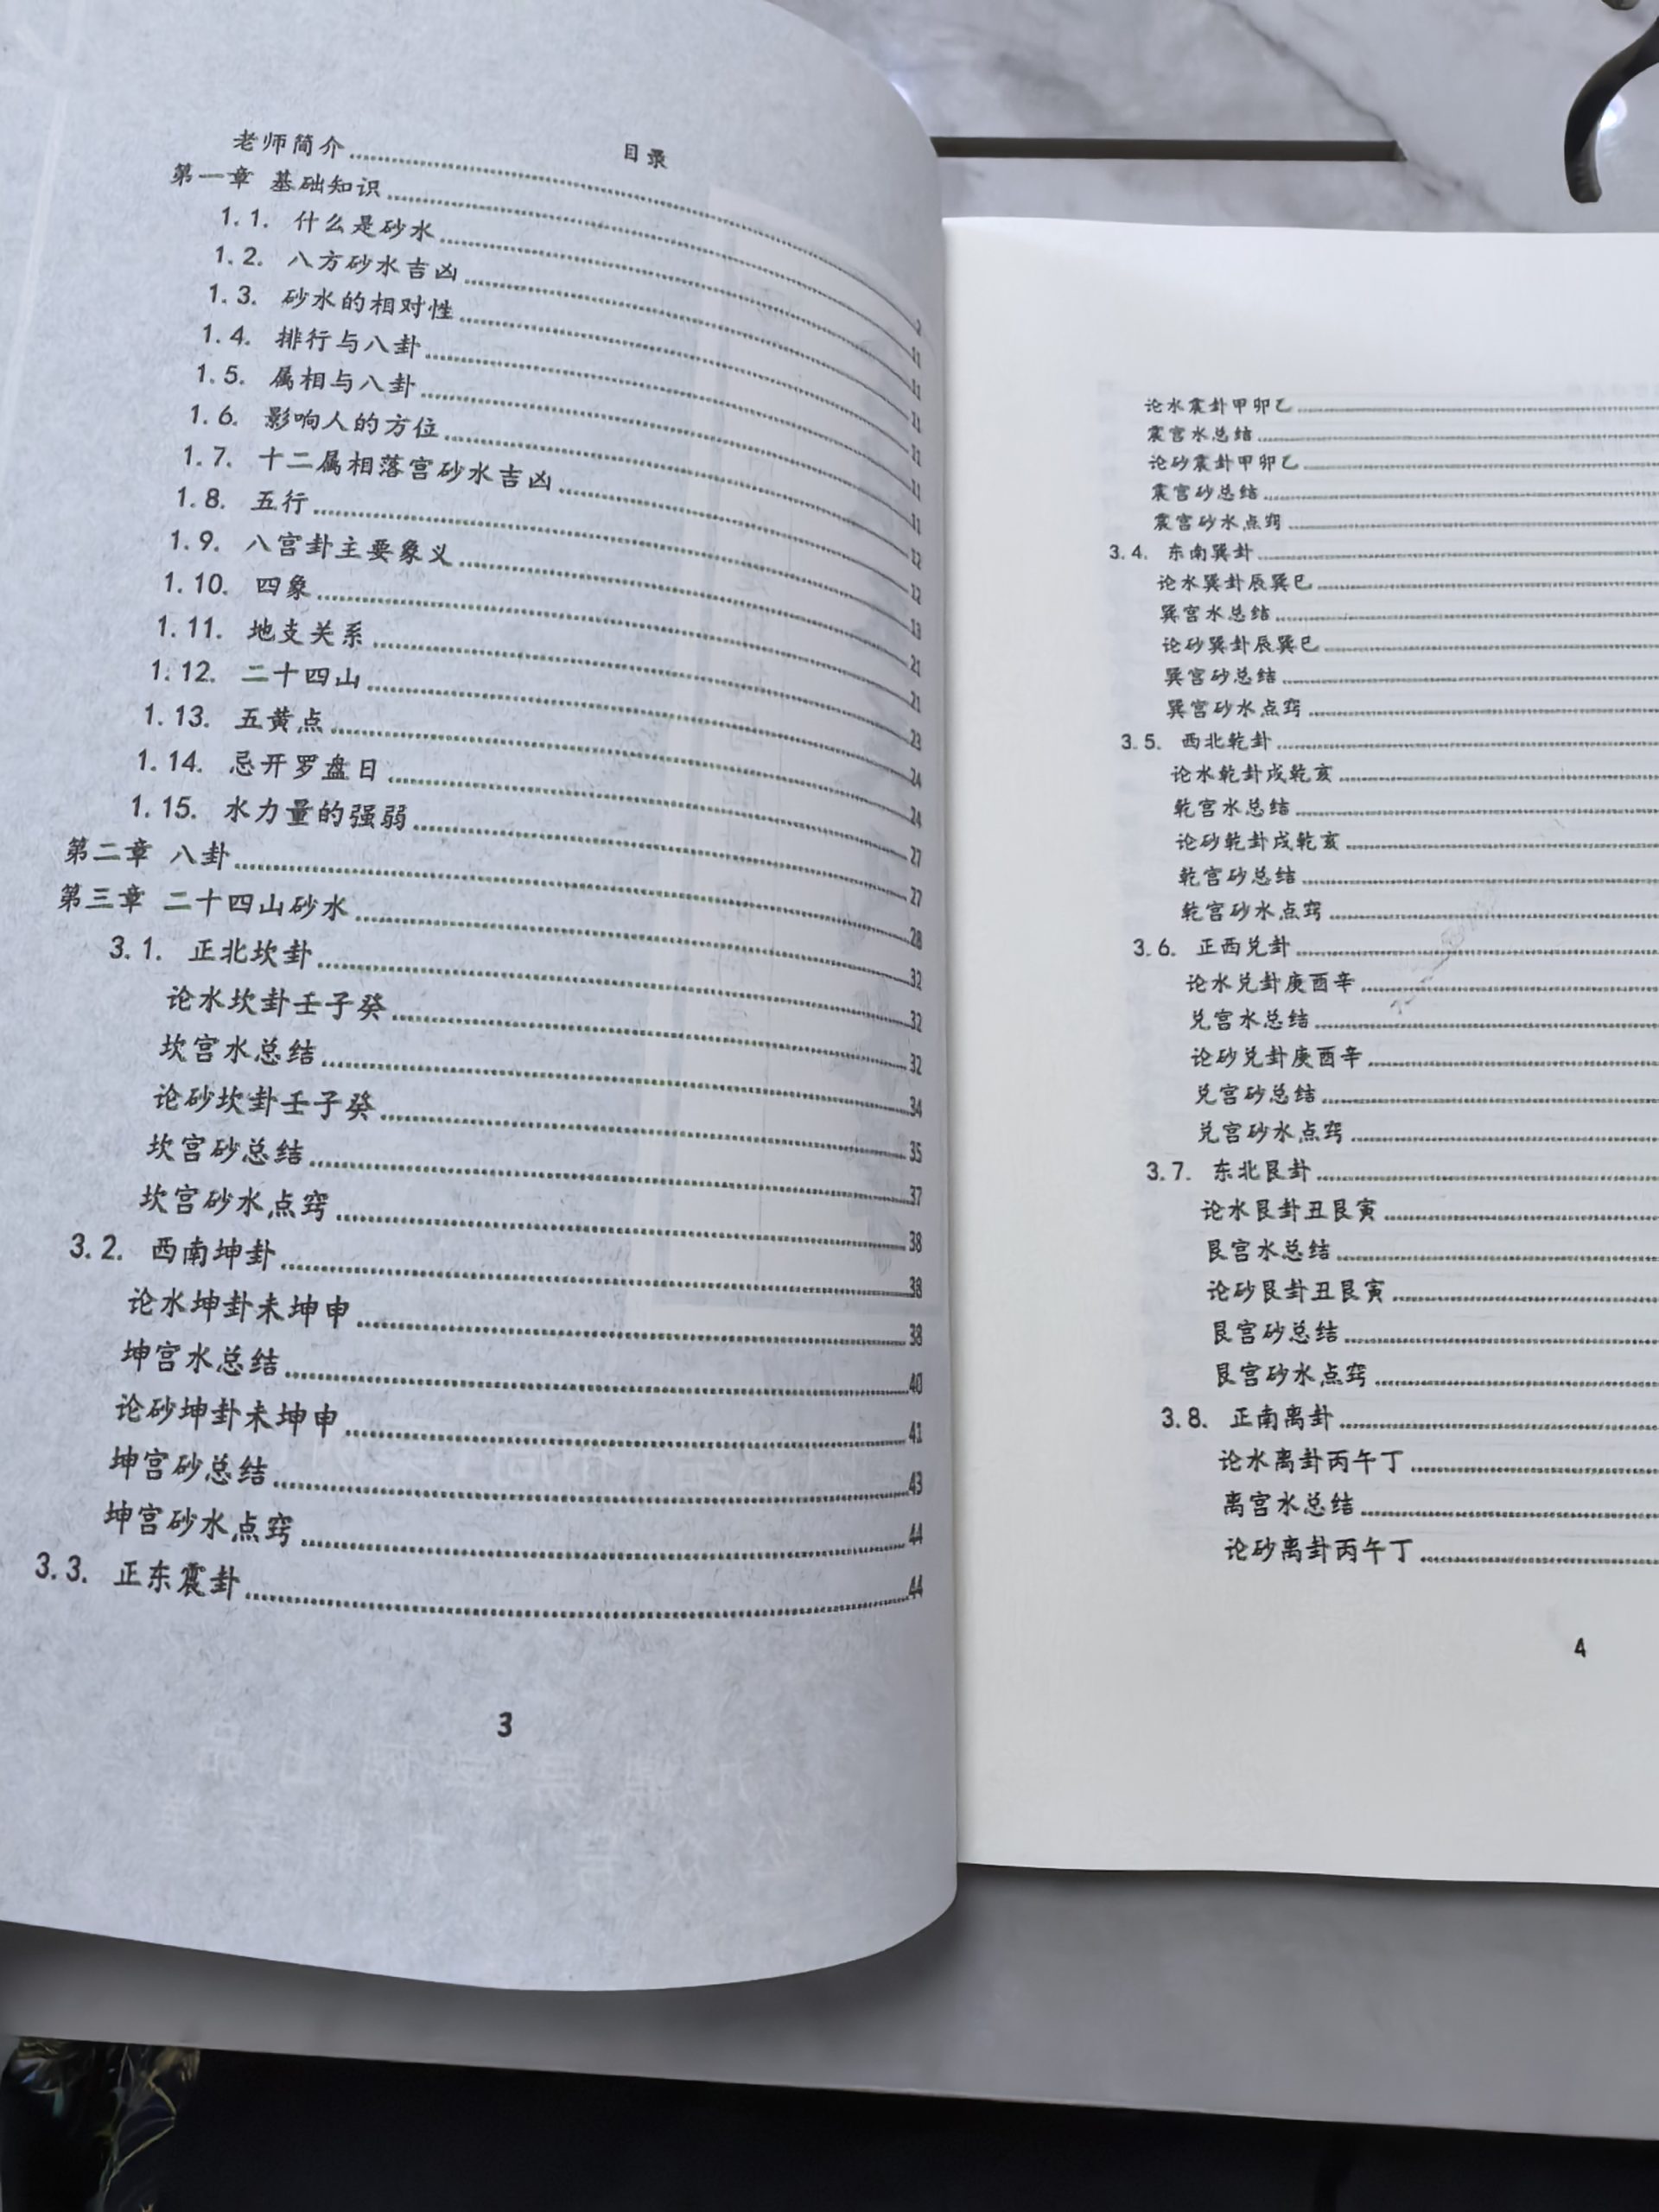 目录
老师简介........2
第一章 基础知识........11
1.1. 什么是砂水........11
1.2. 八方砂水吉凶........11
1.3. 砂水的相对性........11
1.4. 排行与八卦........11
1.5. 属相与八卦........11
1.6. 影响人的方位........12
1.7. 十二属相落宫砂水吉凶........12
1.8. 五行........13
1.9. 八宫卦主要象义........21
1.10. 四象........21
1.11. 地支关系........23
1.12. 二十四山........24
1.13. 五黄点........24
1.14. 忌开罗盘日........27
1.15. 水力量的强弱........27
第二章 八卦........28
第三章 二十四山砂水........32
3.1. 正北坎卦........32
论水坎卦壬子癸........32
坎宫水总结........34
论砂坎卦壬子癸........35
坎宫砂总结........37
坎宫砂水点窍........38
3.2. 西南坤卦........38
论水坤卦未坤申........38
坤宫水总结........40
论砂坤卦未坤申........41
坤宫砂总结........43
坤宫砂水点窍........44
3.3. 正东震卦........44
3
论水震卦甲卯乙........
震宫水总结........
论砂震卦甲卯乙........
震宫砂总结........
震宫砂水点窍........
3.4. 东南巽卦........
论水巽卦辰巽巳........
巽宫水总结........
论砂巽卦辰巽巳........
巽宫砂总结........
巽宫砂水点窍........
3.5. 西北乾卦........
论水乾卦戌乾亥........
乾宫水总结........
论砂乾卦戌乾亥........
乾宫砂总结........
乾宫砂水点窍........
3.6. 正西兑卦........
论水兑卦庚酉辛........
兑宫水总结........
论砂兑卦庚酉辛........
兑宫砂总结........
兑宫砂水点窍........
3.7. 东北艮卦........
论水艮卦丑艮寅........
艮宫水总结........
论砂艮卦丑艮寅........
艮宫砂总结........
艮宫砂水点窍........
3.8. 正南离卦........
论水离卦丙午丁........
离宫水总结........
论砂离卦丙午丁........
4